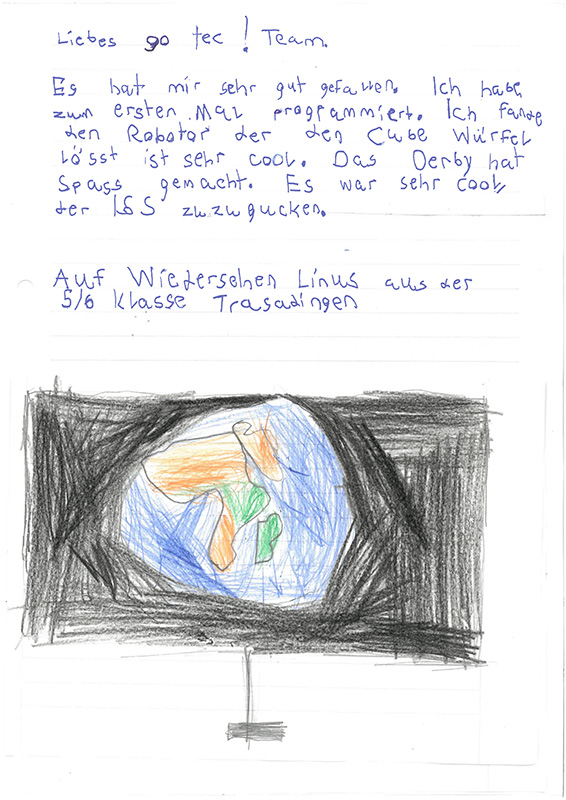 Liebes go tec! Team.
Es hat mir sehr gut gefallen. Ich habe
zum ersten Mal programmiert. Ich fande
den Robotor der den Cube Würfel
lösst ist sehr cool. Das Derby hat
Spass gemacht. Es war sehr cool,
der ISS zuzugucken.
Auf Wiedersehen Linus aus der
5/6 Klasse Trasadingen